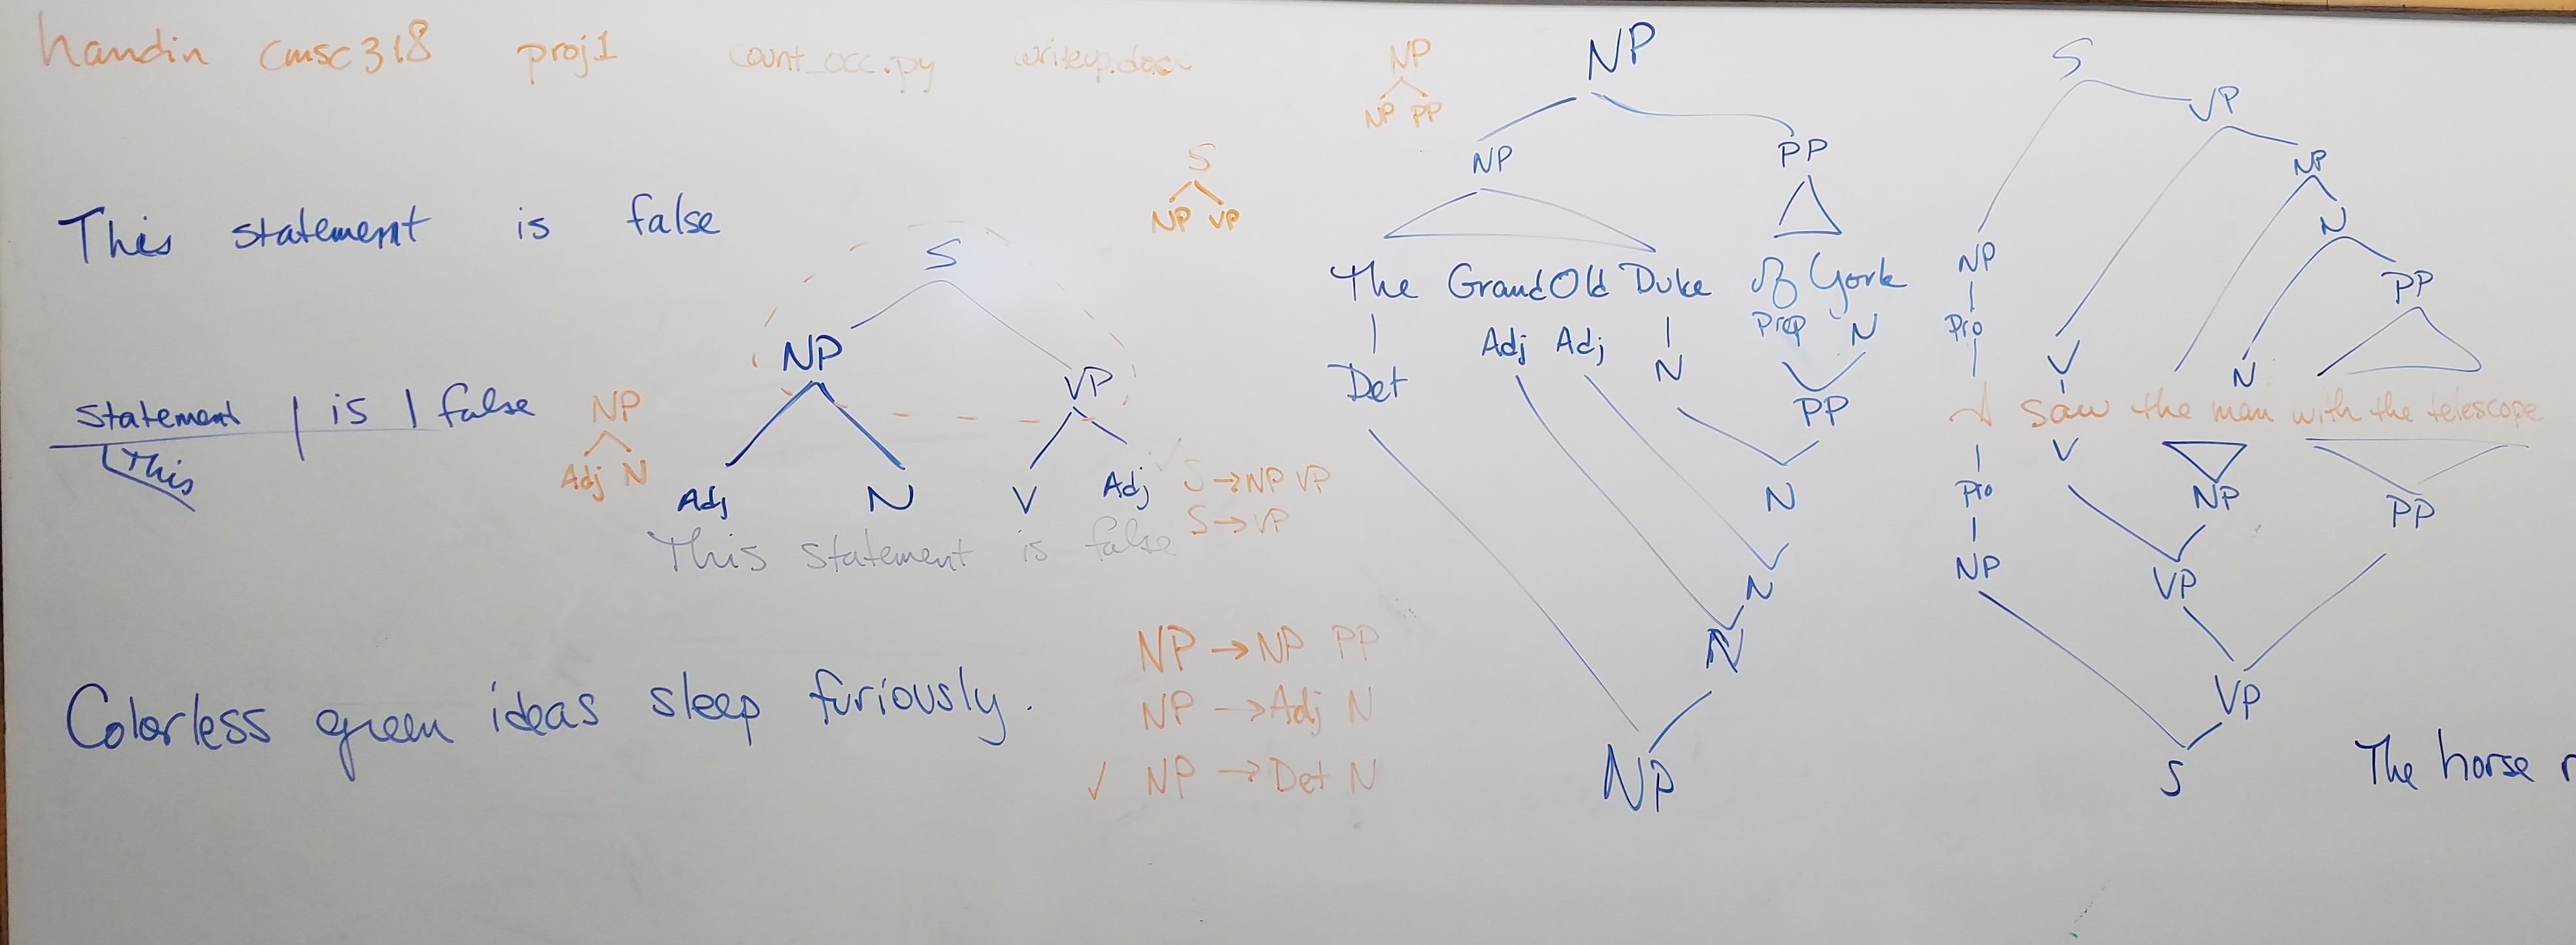 handin cmsc318 proj1 count_occ.py writeup.docx
This statement is false
statement | is | false
This
NP
Adj N
S
NP VP
S
NP VP
Adj N V Adj
This statement is false
S → NP VP
S → VP
Colorless green ideas sleep furiously.
NP → NP PP
NP → Adj N
✓ NP → Det N
NP
NP PP
NP
NP PP
The Grand Old Duke of York
Det Adj Adj N Prep N
PP
N
N
N
NP
S
VP
NP
N
NP PP
Pro
V N
I saw the man with the telescope
V
Pro NP PP
NP VP
VP
S
The horse r